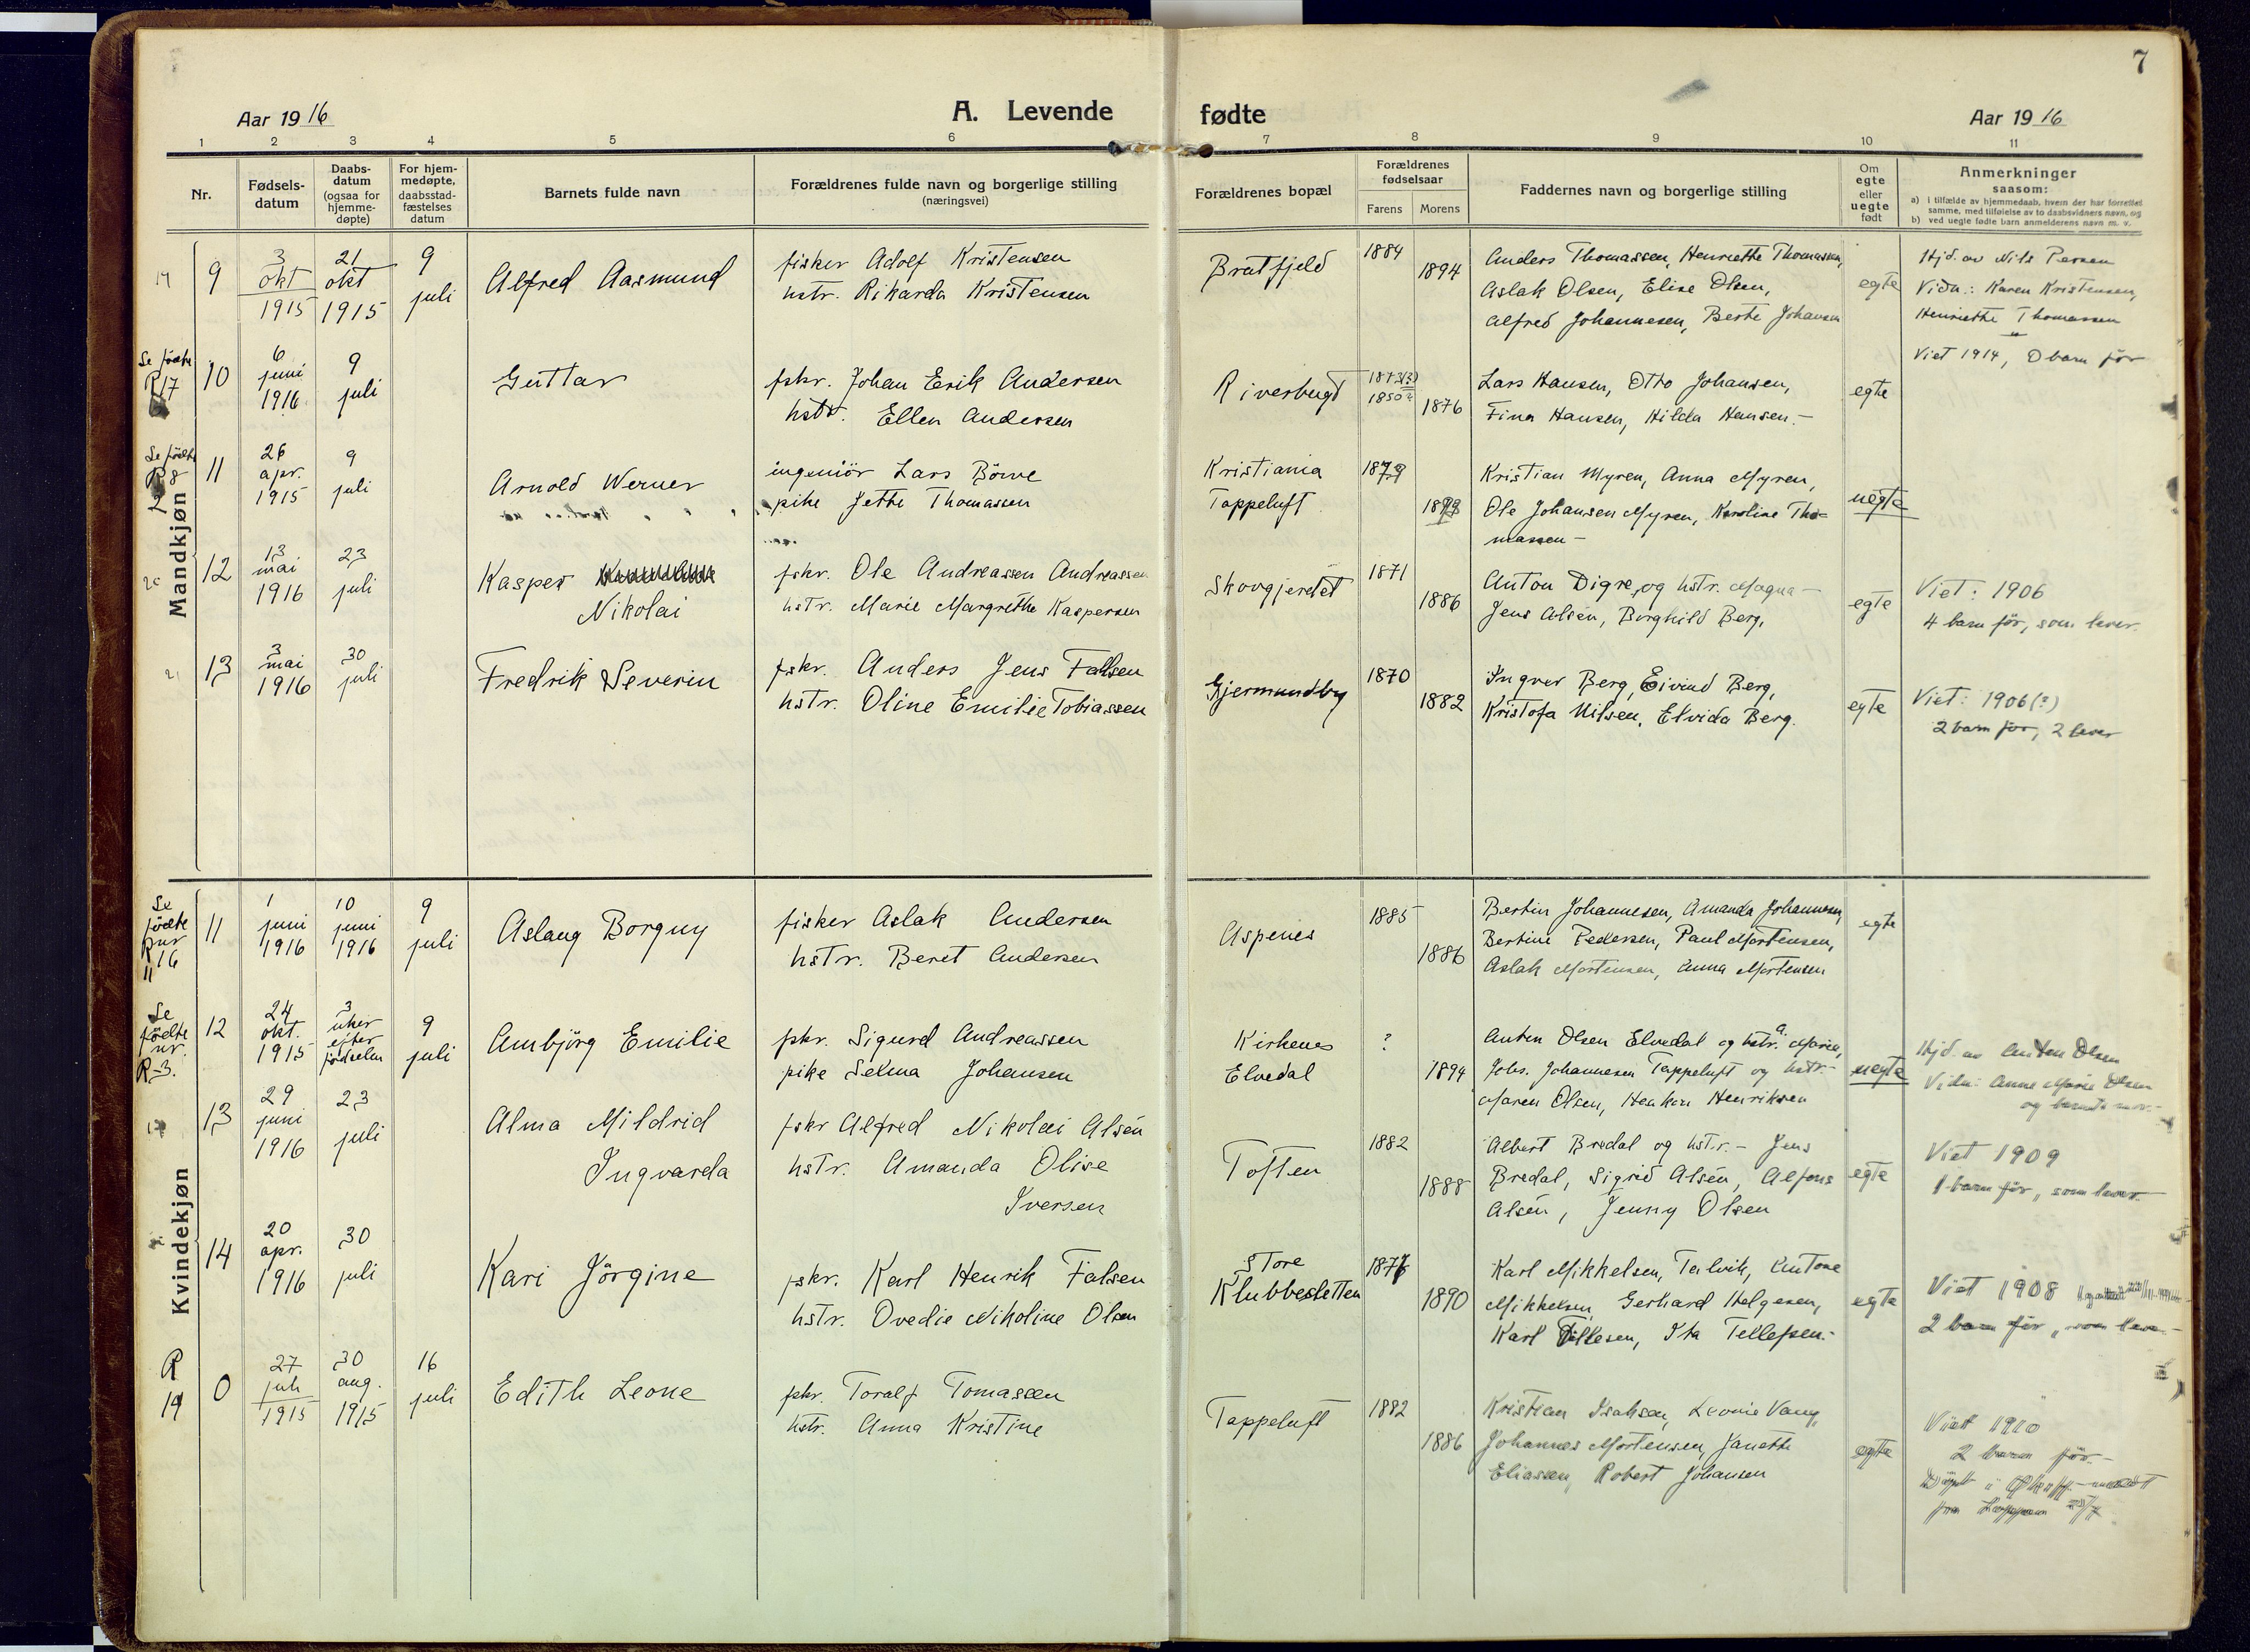 7
Aar 1916
A. Levende
fødte
Aar 1916
1 2 3 4 5 6 7 8 9 10 11
Nr.
Fødsels-
datum
Daabs-
datum
(ogsaa for
hjemme-
døpte)
For hjem-
medøpte,
daabsstad-
fæstelses
datum
Barnets fulde navn
Forældrenes fulde navn og borgerlige stilling
(næringsvei)
Forældrenes bopæl
Forældrenes
fødselsaar
Farens Morens
Faddernes navn og borgerlige stilling
Om
egte
eller
uegte
født
Anmerkninger
saasom:
a) i tilfælde av hjemmedaab, hvem der har forrettet
samme, med tilføielse av to daabsvidners navn, og
b) ved uegte fødte barn anmelderens navn m. v.
Mandkjøn
9
3
okt
1915
21
okt
1915
9
juli
Alfred Aasmund
fisker Adolf Kristensen
hstr. Rikarda Kristensen
Bratfjeld
1884
1894
Anders Thomassen, Henriette Thomassen,
Aslak Olsen, Elise Olsen,
Alfred Johannesen, Berte Johansen
egte
Hjd. av Nils Persen
Vidn.: Karen Kristensen,
Henriette Thomassen
Viet 1914, 0 barn før
Se fødte
R 17
10
6
juni
1916
9
juli
Guttar
fskr. Johan Erik Andersen
hstr. Ellen Andersen
Riverbugt
1873(?)
1850?
1876
Lars Hansen, Otto Johansen,
Fina Hansen, Hilda Hansen.-
egte
Se fødte
R 8
11
26
apr.
1915
9
juli
Arnold Werner
ingeniör Lars Börve
pike Jette Thomassen
Kristiania
Tappeluft
1879
Kristian Myren, Anna Myren,
Ole Johansen Myren, Karoline Tho=
massen-
uegte
12
13
mai
1916
23
juli
Kasper
Nikolai
fskr. Ole Andreassen Andreassen
hstr. Marie Margrethe Kaspersen
Skovgjerdet
1871
1886
Anton Digre, og hstr. Magna-
Jens Alsén, Borghild Berg,
egte
Viet: 1906
4 barn för, som lever.
13
3
mai
1916
30
juli
Fredrik Severin
fskr. Anders Jens Falsen
hstr. Oline Emilie Tobiassen
Gjermundby
1870
1882
Ingver Berg, Eivind Berg,
Kristofa Nilsen, Elvida Berg.
egte
Viet: 1906(?)
2 barn för, 2 lever
Kvindekjøn
Se
fødte
R nr
16
11
1
juni
1916
10
juni
1916
9
juli
Aslaug Borguy
fisker Aslak Andersen
hstr. Beret Andersen
Aspenes
1885
1886
Bertin Johannesen, Amanda Johannesen,
Bertine Pedersen, Paul Mortensen,
Aslak Mortensen, Anna Mortensen
egte
Se
fødte
nr.
R-3.
12
24
okt.
1915
3
uker
efter
fødselen
9
juli
Ambjörg Emilie
fskr. Sigurd Andreassen
pike Selma Johansen
Kirkenes
Elvedal
?
1894
Anton Olsen Elvedal og hstr. A. Marie,
Johs. Johannesen Tappeluft og hstr.-
Maren Olsen, Haakon Henriksen
uegte
Hjd. av Anton Olsen
Vidn: Anne Marie Olsen
og barnets mor.-
13
29
juni
1916
23
juli
Alma Mildrid
Ingvarda
fskr Alfred Nikolai Alsén
hstr. Amanda Olise
Iversen
Toften
1882
1888
Albert Bredal og hstr.- Jens
Bredal, Sigrid Alsén, Alfons
Alsén, Jenny Olsen
egte
Viet 1909
1 barn för, som lever.
14
20
apr.
1916
30
juli
Kari Jörgine
fskr. Karl Henrik Falsen
hstr. Ovedie Nikoline Olsen
Store
Klubbesletten
1890
Karl Mikkelsen, Talvik, Antone
Mikkelsen, Gerhard Helgesen,
Karl Tellesen, Ida Tellefsen.-
egte
Viet 1908
2 barn för, som lever.-
R
19
0
27
juli
1915
30
aug.
1915
16
juli
Edith Leone
fskr. Toralf Tomassen
hstr. Anna Kristine
Tappeluft
1882
1886
Kristian Isaksen, Leonie Vang,
Johannes Mortensen, Janette
Eliassen, Robert Johansen
egte
Viet 1910
2 barn för.-